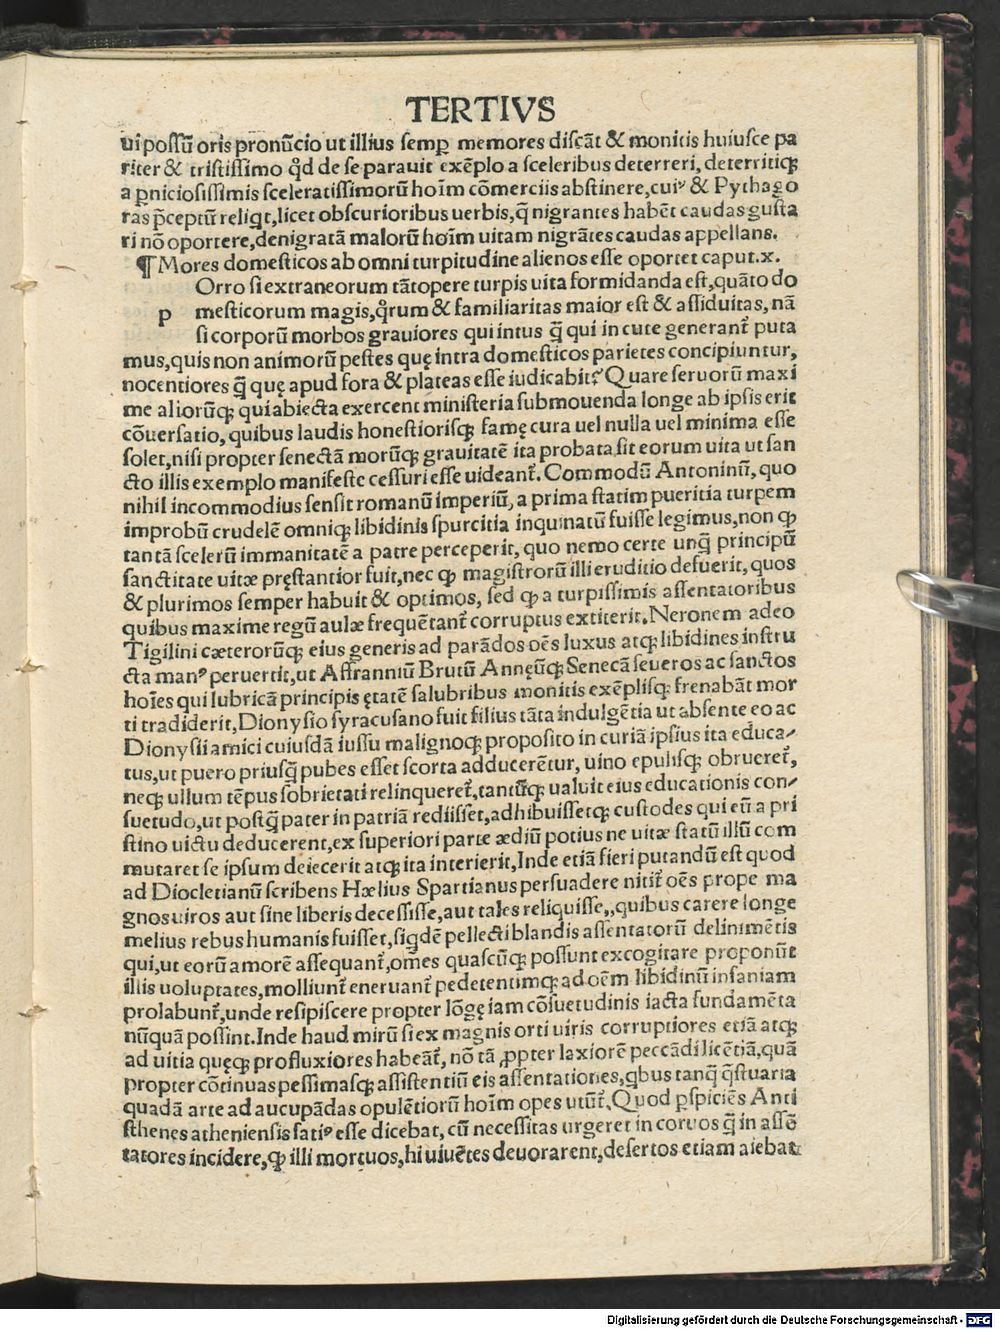 TERTIVS
vi possũ oris pronũcio ut illius semp̱ memores discãt & monitis huiusce pa
riter & tristissimo qđ de se parauit exẽplo a sceleribus deterreri, deterritisq;
a p̱niciosissimis sceleratissimorũ hoĩm cõmerciis abstinere, cuiꝰ & Pythago
ras p̃ceptũ reliqt, licet obscurioribus uerbis, q̃ nigrantes habẽt caudas gusta
ri nõ oportere, denigratã malorũ hoĩm uitam nigrãtes caudas appellans.
¶ Mores domesticos ab omni turpitudine alienos esse oportet caput. x.
p Orro si extraneorum tãtopere turpis uita formidanda est, quãto do
mesticorum magis, qr̃um & familiaritas maior est & assiduitas, nã
si corporũ morbos grauiores qui intus q̃ qui in cute generant̃ puta
mus, quis non animorũ pestes quę intra domesticos parietes concipiuntur,
nocentiores q̃ quę apud fora & plateas esse iudicabit? Quare seruorũ maxi
me aliorũq; qui abiecta exercent ministeria submouenda longe ab ipsis erit
cõuersatio, quibus laudis honestiorisq; famę cura uel nulla uel minima esse
solet, nisi propter senectã morũq; grauitatẽ ita probata sit eorum uita ut san
cto illis exemplo manifeste cessuri esse uideant̃. Commodũ Antoninũ, quo
nihil incommodius sensit romanũ imperiũ, a prima statim pueritia turpem
improbũ crudelẽ omniq; libidinis spurcitia inquinatũ fuisse legimus, non ꝙ
tantã scelerũ immanitatẽ a patre perceperit, quo nemo certe unq̃ principũ
sanctitate uitæ pręstantior fuit, nec ꝙ magistrorũ illi eruditio defuerit, quos
& plurimos semper habuit & optimos, sed ꝙ a turpissimis assentatoribus
quibus maxime regũ aulæ frequẽtant̃ corruptus extiterit. Neronem adeo
Tigilini cæterorũq; eius generis ad parãdos oẽs luxus atq; libidines instru
cta manꝰ peruertit, ut Affranniũ Brutũ Annęũq; Senecã seueros ac sanctos
hoĩes qui lubricã principis ętatẽ salubribus monitis exẽplisq; frenabãt mor
ti tradiderit, Dionysio syracusano fuit filius tãta indulgẽtia ut absente eo ac
Dionysii amici cuiusdã iussu malignoq; proposito in curiã ipsius ita educa-
tus, ut puero priusq̃ pubes esset scorta adducerẽtur, uino epulisq; obrueret̃,
neq; ullum tẽpus sobrietati relinqueret̃, tantũq; ualuit eius educationis con-
suetudo, ut postq̃ pater in patriã rediisset, adhibuissetq; custodes qui eũ a pri
stino uictu deducerent, ex superiori parte ædiũ potius ne uitæ statũ illũ com
mutaret se ipsum deiecerit atq; ita interierit, Inde etiã fieri putandũ est quod
ad Diocletianũ scribens Hælius Spartianus persuadere nitit̃ oẽs prope ma
gnos uiros aut sine liberis decessisse, aut tales reliquisse,, quibus carere longe
melius rebus humanis fuisset, siqdẽ pellecti blandis assentatorũ delinimẽtis
qui, ut eorũ amorẽ assequant̃, om̃es quascũq; possunt excogitare proponũt
illis uoluptates, molliunt̃ eneruant̃ pedetentimq; ad oẽm libidinũ insaniam
prolabunt̃, unde resipiscere propter lõgę iam cõsuetudinis iacta fundamẽta
nũquã possint. Inde haud mirũ si ex magnis orti uiris corruptiores etiã atq;
ad uitia quęq; profluxiores habeãt̃, nõ tã ꝓpter laxiorẽ peccãdi licẽtiã, quã
propter cõtinuas pessimasq; assistentiũ eis assentationes, qbus tanq̃ q̃stuaria
quadã arte ad aucupãdas opulẽtiorũ hoĩm opes utũt̃. Quod p̱spiciẽs Anti
sthenes atheniensis satiꝰ esse dicebat, cũ necessitas urgeret in coruos q̃ in assẽ
tatores incidere, ꝙ illi mortuos, hi uiuẽtes deuorarent, desertos etiam aiebat
Digitalisierung gefördert durch die Deutsche Forschungsgemeinschaft - DFG